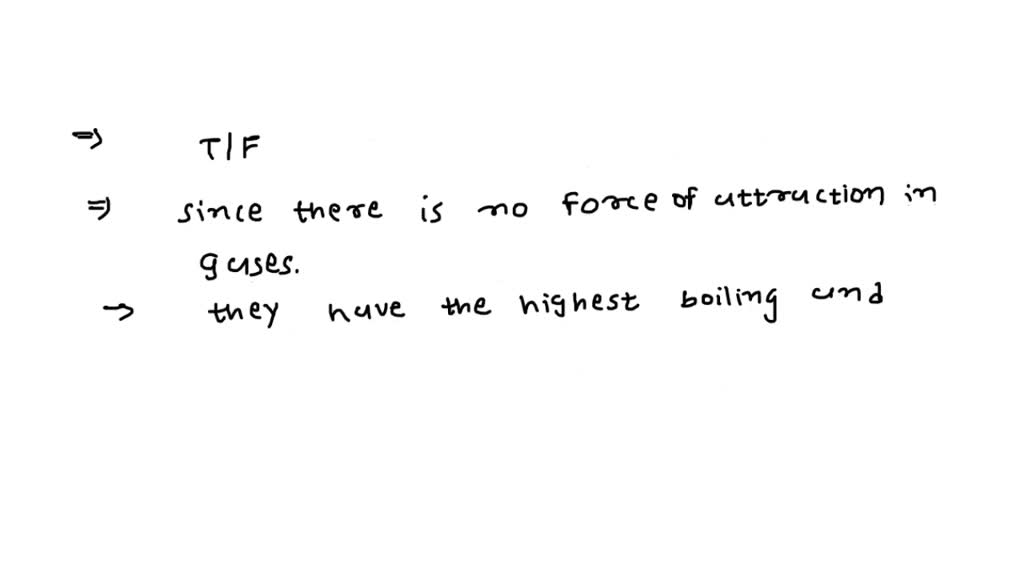 ⇒ T/F
⇒ since there is no force of attraction in
gases.
→ they have the highest boiling and